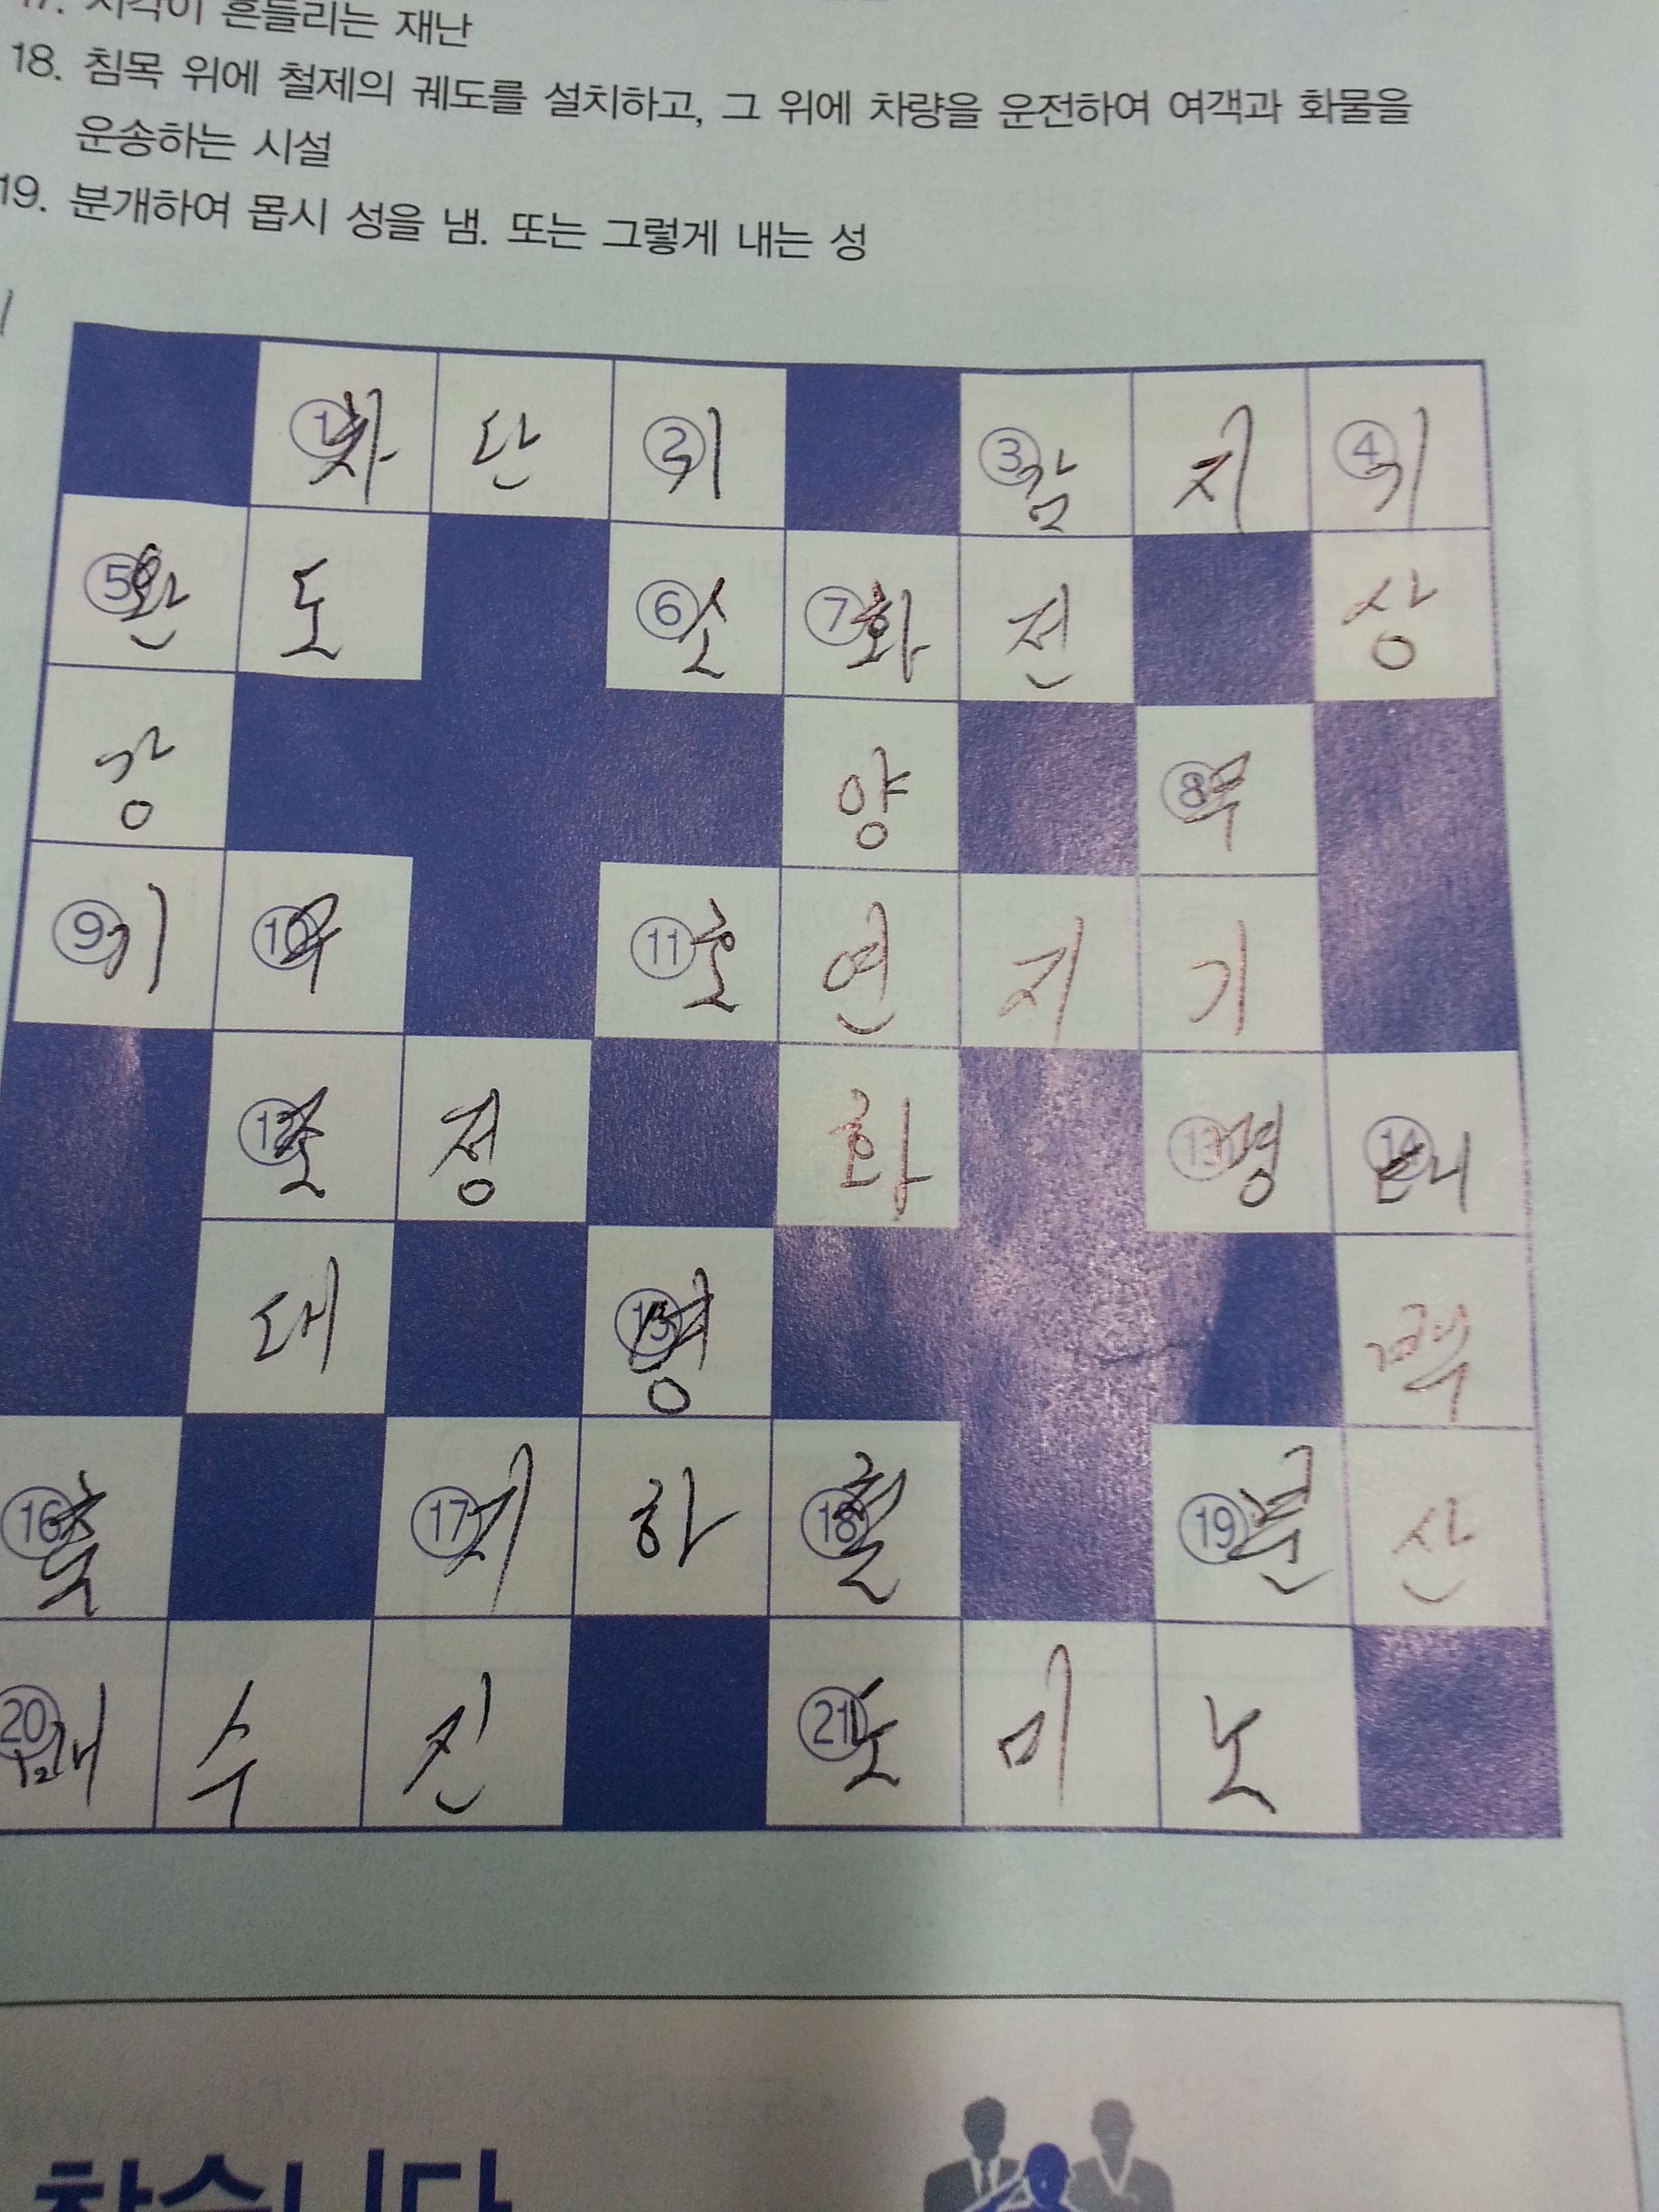 흔들리는 재난
18. 침목 위에 철제의 궤도를 설치하고, 그 위에 차량을 운전하여 여객과 화물을
운송하는 시설
19. 분개하여 몹시 성을 냄. 또는 그렇게 내는 성
①차 단 ②기 ③감 지 ④기
⑤완 도 ⑥소 ⑦화 전 상
강 양 ⑧무
⑨기 ⑩우 ⑪호 연 지 기
⑫조 정 화 ⑬명 ⑭태
대 ⑮영 백
⑯축 ⑰지 하 ⑱철 ⑲분 산
⑳배 수 진 ㉑도 미 노